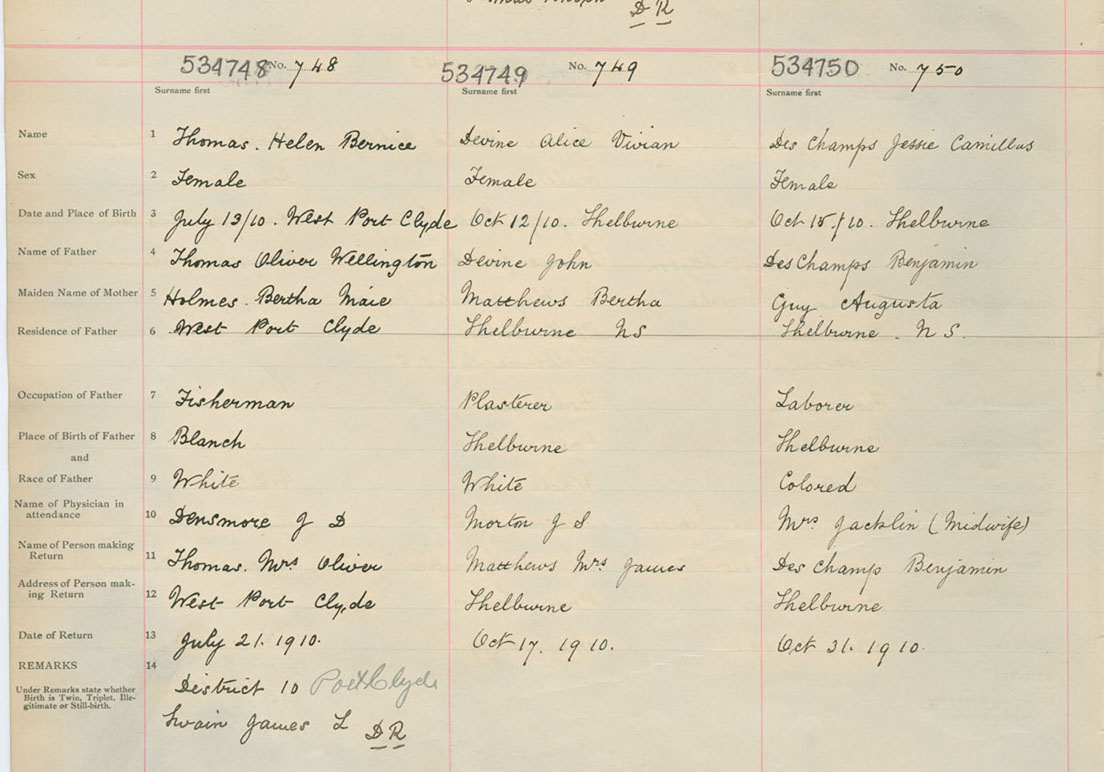 D R
534748 No. 748 534749 No. 749 534750 No. 750
Surname first Surname first Surname first
Name 1 Thomas. Helen Bernice Devine Alice Vivian Des Champs Jessie Camillus
Sex 2 Female Female Female
Date and Place of Birth 3 July 13/10. West Port Clyde Oct 12/10. Shelburne Oct 15/10. Shelburne
Name of Father 4 Thomas Oliver Wellington Devine John DesChamps Benjamin
Maiden Name of Mother 5 Holmes. Bertha Maie Matthews Bertha Guy Augusta
Residence of Father 6 West Port Clyde Shelburne NS Shelburne. N S.
Occupation of Father 7 Fisherman Plasterer Laborer
Place of Birth of Father 8 Blanch Shelburne Shelburne
and
Race of Father 9 White White Colored
Name of Physician in
attendance 10 Densmore J D Morton J S Mrs Jacklin (Midwife)
Name of Person making
Return 11 Thomas. Mrs Oliver Matthews Mrs James Des Champ Benjamin
Address of Person mak-
ing Return 12 West Port Clyde Shelburne Shelburne
Date of Return 13 July 21. 1910. Oct 17. 1910. Oct 31. 1910.
REMARKS 14
Under Remarks state whether
Birth is Twin, Triplet, Ille-
gitimate or Still-birth.
District 10 Port Clyde
Swain James L D R